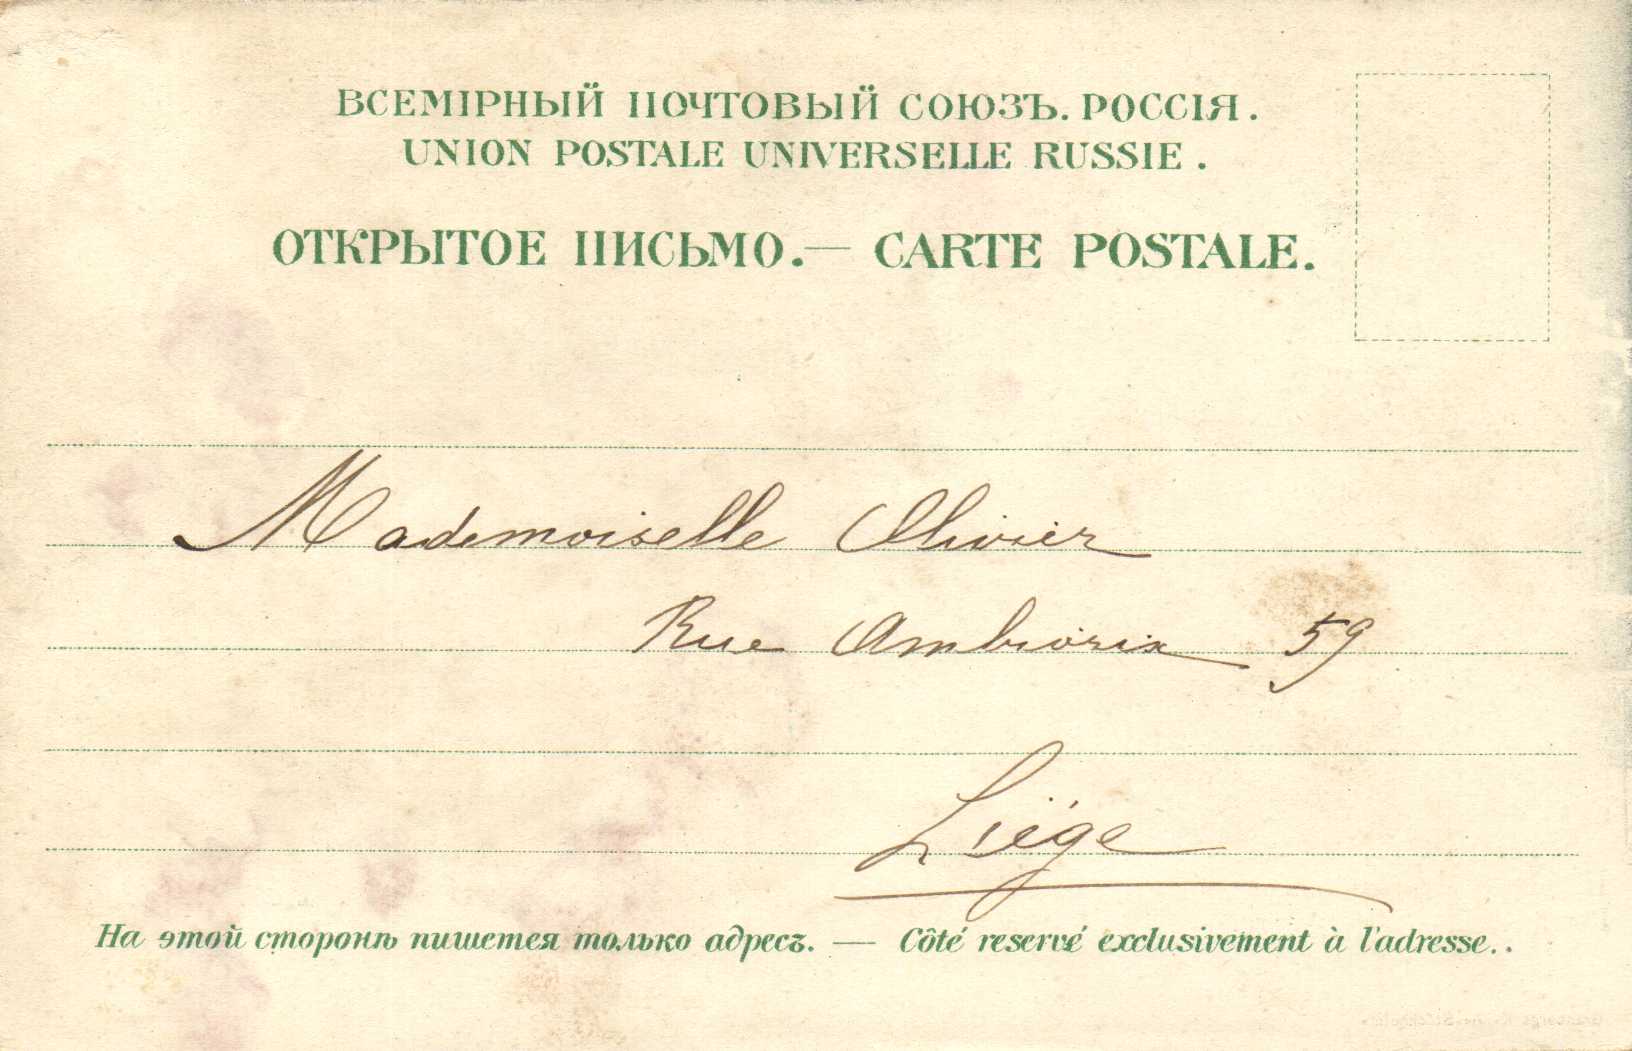 ВСЕМІРНЫЙ ПОЧТОВЫЙ СОЮЗЪ. РОССІЯ.
UNION POSTALE UNIVERSELLE RUSSIE.
ОТКРЫТОЕ ПИСЬМО.— CARTE POSTALE.
Mademoiselle Olivier
Rue Ambiorix 59
Liége
На этой сторонѣ пишется только адресъ. — Côté reservé exclusivement à l'adresse..